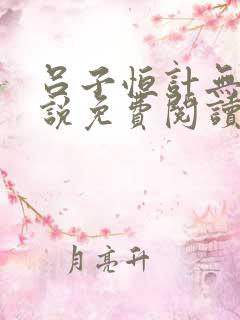 呂子恒計無
說免費閱讀
月亮升